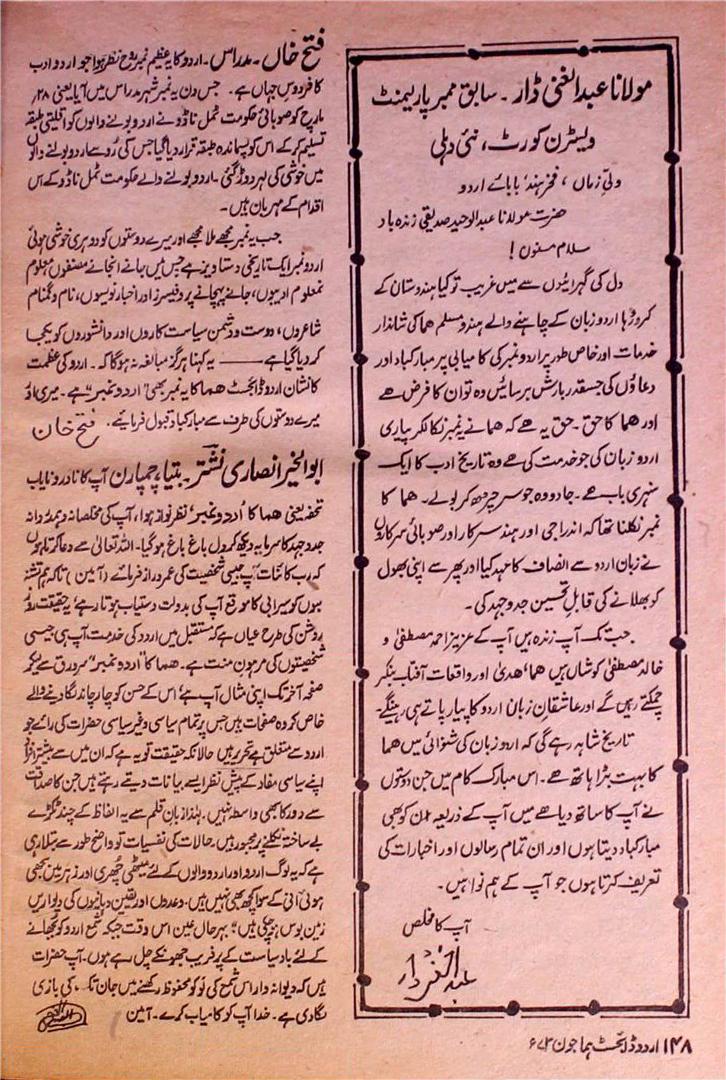 مولانا عبدالغنی ڈار ۔ سابق ممبر پارلیمنٹ
ویسٹرن کورٹ، نئی دہلی
ولیِ زماں ، فخرِ ہند، بابائے اردو
حضرت مولانا عبدالوحید صدیقی زندہ باد
سلام مسنون !
دل کی گہرائیوں سے میں غریب تو کیا ہندوستان کے
کروڑہا اردو زبان کے چاہنے والے ہندو مسلم ھما کی شاندار
خدمات اور خاص طور پر اردو نمبر کی کامیابی پر مبارکباد اور
دعاؤں کی جسقدر بارش برسائیں وہ تو ان کا فرض ھے
اور ھما کا حق ۔ حق یہ ھے کہ ھما نے یہ نمبر نکالکر پیاری
اردو زبان کی جو خدمت کی ھے وہ تاریخِ ادب کا ایک
سنہری باب ھے۔ جادو وہ جو سر چڑھ کر بولے۔ ھما کا
نمبر نکلنا تھا کہ اندرا جی اور ہند سرکار اور صوبائی سرکاروں
نے زبان اردو سے انصاف کا عہد کیا اور پھر سے اپنی بھول
کو بھلانے کی قابلِ تحسین جدوجہد کی۔
جب تک آپ زندہ ہیں آپ کے عزیز احمد مصطفیٰ و
خالد مصطفیٰ کوشاں ہیں ھما، ھدیٰ اور واقعات آفتاب بنکر
چمکتے رہیں گے اور عاشقانِ زبان اردو کا پیار پاتے ہی رہینگے۔
تاریخ شاہد رہے گی کہ اردو زبان کی شنوائی میں ھما
کا بہت بڑا ہاتھ ھے۔ اس مبارک کام میں جن دوستوں
نے آپ کا ساتھ دیا ھے میں آپ کے ذریعہ ان کو بھی
مبارکباد دیتا ہوں اور ان تمام رسالوں اور اخبارات کی
تعریف کرتا ہوں جو آپ کے ہم نوا ہیں۔
آپ کا مخلص
عبدالغنی ڈار
فتح خاں ۔ مدراس ۔ اردو کا یہ عظیم نمبر روح نظر ہوا جو اردو ادب
کا فردوسِ جہاں ہے ۔ جس دن یہ نمبر شہر مدراس میں آیا یعنی ۲۸؍
مارچ کو صوبائی حکومت ٹمل ناڈو نے اردو بولنے والوں کو اقلیتی طبقہ
تسلیم کر کے اس کو پسماندہ طبقہ قرار دیا گیا جس کی رُو سے اردو بولنے والوں
میں خوشی کی لہر دوڑ گئی ۔ اردو بولنے والے حکومت ٹمل ناڈو کے اس
اقدام کے مہربان ہیں۔
جب یہ نمبر مجھے ملا مجھے اور میرے دوستوں کو دوہری خوشی ہوئی
اردو نمبر ایک تاریخی دستاویز ہے جس میں جانے انجانے مصنفوں معلوم
نامعلوم ادیبوں، جانے پہچانے پروفیسرز اور اخبار نویسوں، نام و گمنام
شاعروں ، دوست و دشمن سیاست کاروں اور دانشوروں کو یکجا
کر دیا گیا ہے ــــــ یہ کہنا ہرگز مبالغہ نہ ہوگا کہ ۔ اردو کی عظمت
کا نشان اردو ڈائجسٹ ھما کا یہ نمبر بھی "اردو نمبر" ہے۔ میری اور
میرے دوستوں کی طرف سے مبارکباد قبول فرمائیے۔ فتح خان
ابوالخیر انصاری نشتر ۔ بتیا، چمپارن آپ کا نادر و نایاب
تحفہ یعنی ھما کا 'اردو نمبر' نظر نواز ہوا، آپ کی مخلصانہ و ہمدردانہ
جدوجہد کا سرمایہ دیکھ کر دل باغ باغ ہو گیا۔ اللہ تعالیٰ سے دعا کرتا ہوں
کہ رب کائنات آپ جیسی شخصیت کی عمر دراز فرمائے (آمین) تاکہ ہم تشنہ
لبوں کو سیرابی کا موقع آپ کی بدولت دستیاب ہوتا رہے، یہ حقیقت روز
روشن کی طرح عیاں ہے کہ مستقبل میں اردو کی خدمت آپ ہی جیسی
شخصیتوں کی مرہون منت ہے۔ ھما کا "اردو نمبر" سرورق سے لیکر
صفحہ آخر تک اپنی مثال آپ ہے، اس کے حسن کو چار چاند لگا دینے والے
خاص کر وہ صفحات ہیں جس پر تمام سیاسی و غیر سیاسی حضرات کی رائے جو
اردو سے متعلق ہے تحریر ہیں حالانکہ حقیقت تو یہ ہے کہ ان میں سے بیشتر افراد
اپنے سیاسی مفاد کے پیش نظر ایسے بیانات دیتے رہتے ہیں جن کا صداقت
سے دور کا بھی واسطہ نہیں۔ لہٰذا زبانِ قلم سے یہ الفاظ کے چند ٹکڑے
بے ساختہ نکلنے پر مجبور ہیں۔ حالات کی نفسیات تو واضح طور سے بتلا رہی
ہے کہ یہ لوگ اردو اور اردو والوں کے لئے میٹھی چھری اور زہر میں بجھی
ہوئی انی کے سوا کچھ بھی نہیں ہیں، وعدوں اور یقین دہانیوں کی دیواریں
زمین بوس ہو چکی ہیں، بہرحال عین اس وقت جبکہ شمع اردو کو بجھانے
کے لئے بادِ سیاست کے پرفریب جھونکے چل رہے ہوں۔ آپ حضرات
ہیں کہ دیوانہ وار اس شمع کی لو کو محفوظ رکھنے میں جان تک کی بازی
لگا دی ہے۔ خدا آپ کو کامیاب کرے۔ آمین
۱۴۸ اردو ڈائجسٹ ہما جون ۷۳ء